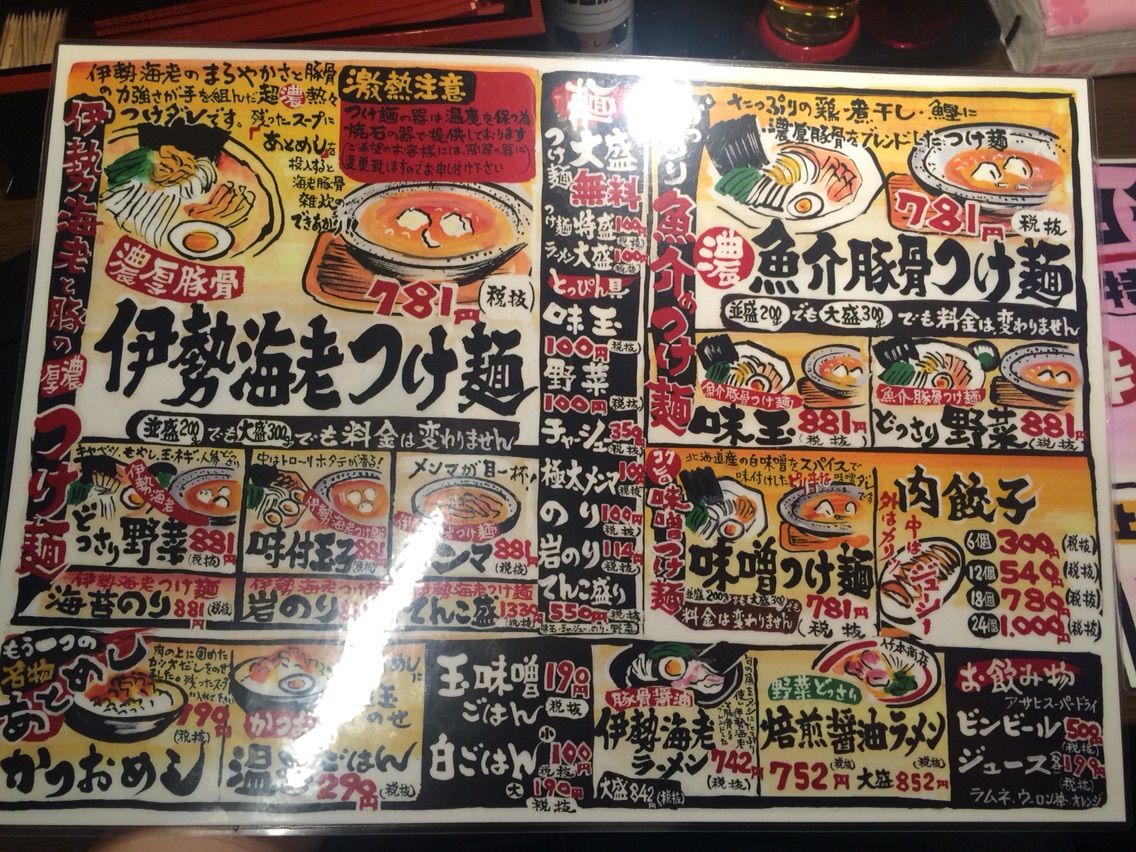 伊勢海老のまろやかさと豚骨
の力強さが手を組んだ超濃熱々
つけダレです。
残ったスープに
あとめしを
投入すると
海老豚骨
雑炊の
できあがり!
激熱注意
つけ麺の器は温度を保つ為
焼石の器で提供しております
ご希望のお客様には、陶器の器に
変更致しますのでお申し付け下さい
伊勢海老と豚の濃厚つけ麺
濃厚豚骨
781円(税抜)
伊勢海老つけ麺
並盛200gでも大盛300gでも料金は変わりません
キャベツ、もやし、玉ネギ、人参どっさり
伊勢海老
どっさり野菜881円(税抜)
中はトローリホタテが香る!
伊勢海老つけ麺
味付玉子881円(税抜)
メンマが目一杯!
つけ麺
メンマ881円(税抜)
伊勢海老つけ麺
海苔のり881円(税抜)
伊勢海老つけ麺
岩のり881円(税抜)
伊勢海老つけ麺
てんこ盛1330円(税抜)
麺
つけ麺大盛無料
つけ麺特盛100円(税抜)
ラーメン大盛100円(税抜)
とっぴん具
味玉
100円(税抜)
野菜
100円(税抜)
チャーシュー350円(税抜)
極太メンマ100円(税抜)
のり100円(税抜)
岩のり114円(税抜)
てんこ盛り
550円(税抜)
味玉・チャーシュー・のり・野菜
魚介のつけ麺
たっぷりの鶏・煮干し・鰹に
濃厚豚骨をブレンドしたつけ麺
781円(税抜)
濃魚介豚骨つけ麺
並盛200gでも大盛300gでも料金は変わりません
魚介豚骨つけ麺
味玉881円(税抜)
魚介豚骨つけ麺
どっさり野菜881円(税抜)
コク旨味噌つけ麺
北海道産の白味噌をスパイスで
味付けしたピリ辛な味噌ダレです
味噌つけ麺
並盛200gでも大盛300gでも
料金は変わりません
781円(税抜)
肉餃子
外はカリッ
中はジューシー
6個300円(税抜)
12個540円(税抜)
18個780円(税抜)
24個1,000円(税抜)
もう一つの
名物
あとめし
790円(税抜)
かつおめし
肉の上に固めた
カツオだしをのせ
ました。残ったスープに
入れて下さい
かつお
のせ
温玉ごはん
290円(税抜)
玉味噌
ごはん
190円(税抜)
白ごはん
小100円(税抜)
大190円(税抜)
豚骨醤油
伊勢海老
ラーメン742円(税抜)
大盛842円(税抜)
竹本商店
野菜どっさり
焙煎醤油ラーメン
752円(税抜)大盛852円(税抜)
お飲み物
アサヒスーパードライ
ビンビール500円(税抜)
ジュース各190円(税抜)
ラムネ、ウーロン茶、オレンジ